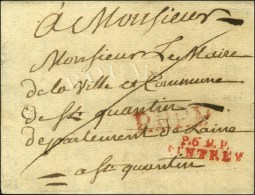 à Monsieur
Monsieur Le Maire
de la Ville et Commune
de St quantin
departement de Laine
P.P.P.
P.6.P.P.
a St quantin